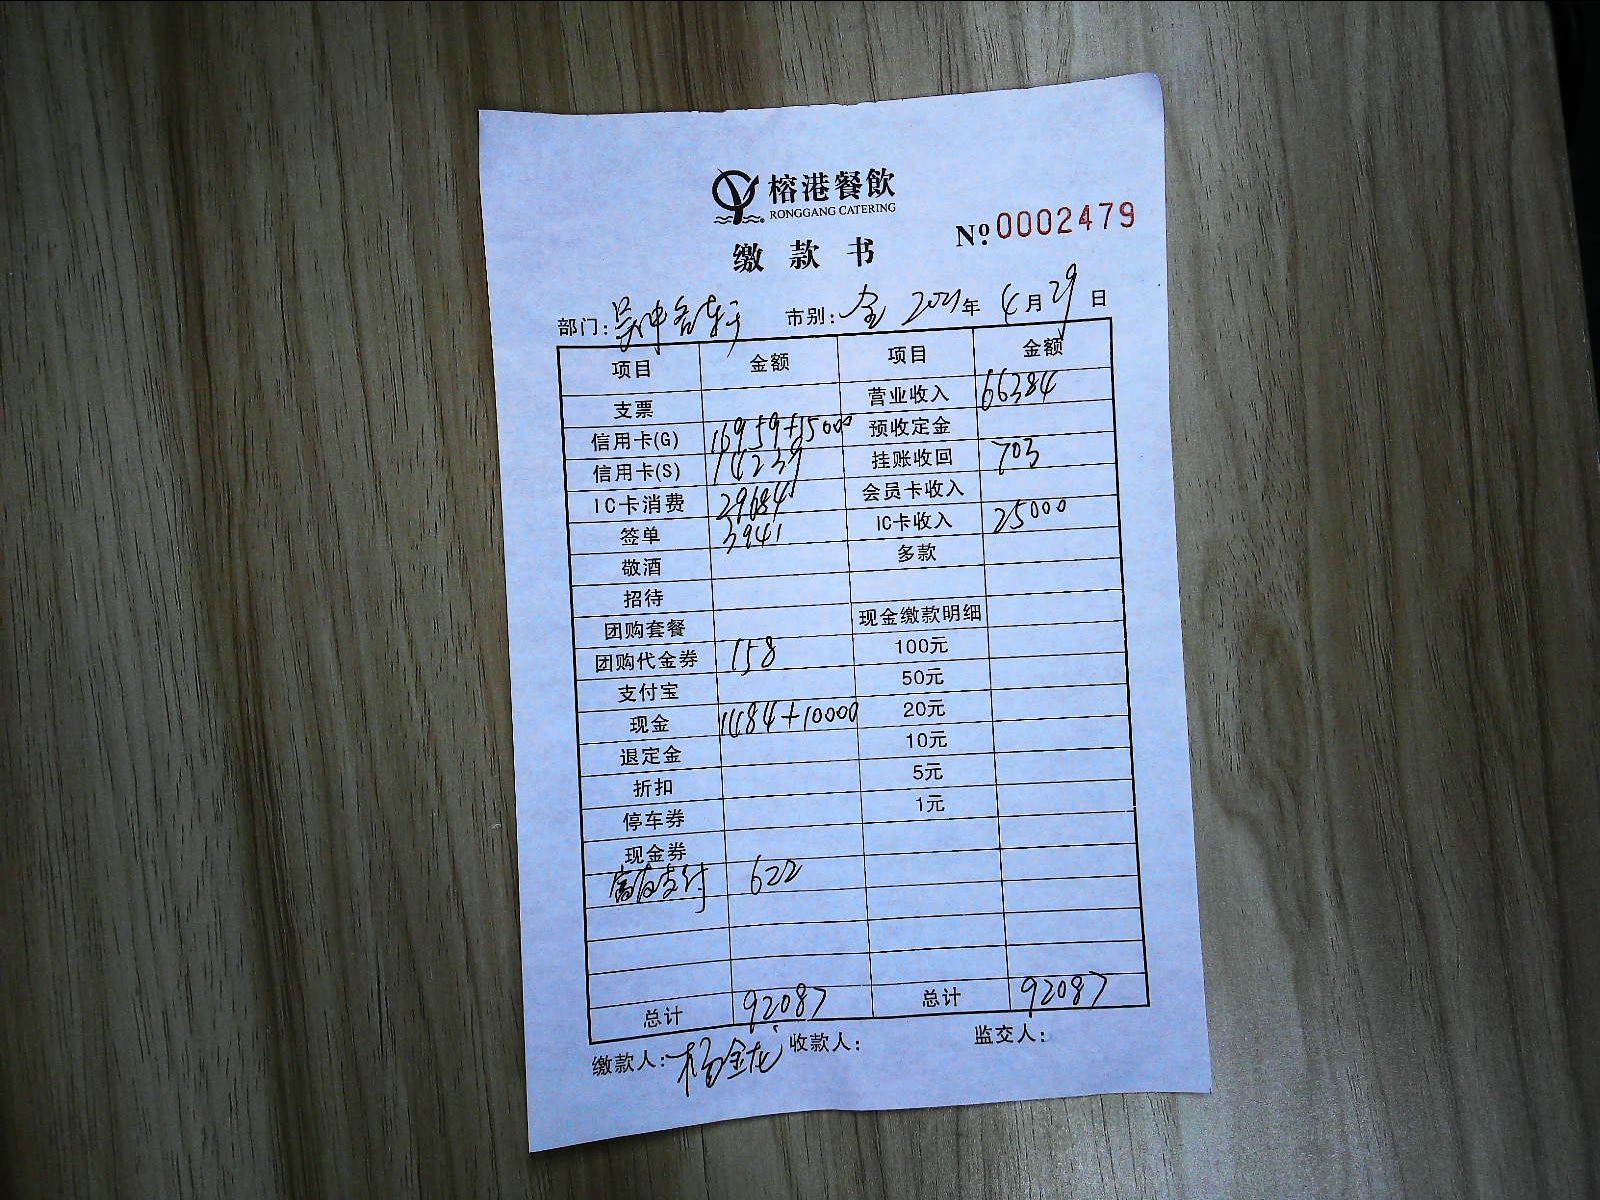 榕港餐飲
RONGGANG CATERING
缴款书
№:0002479
部门: 市别:全 2021年 4月29日
项目 金额 项目 金额
支票 营业收入 66384
信用卡(G) 16959+15000 预收定金
信用卡(S) 14239 挂账收回 703
IC卡消费 29684 会员卡收入
签单 3941 IC卡收入 25000
敬酒 多款
招待
团购套餐 现金缴款明细
团购代金券 158 100元
支付宝 50元
现金 1484+10000 20元
退定金 10元
折扣 5元
停车券 1元
现金券
富友支付 622
总计 92087 总计 92087
缴款人:杨金龙 收款人: 监交人: